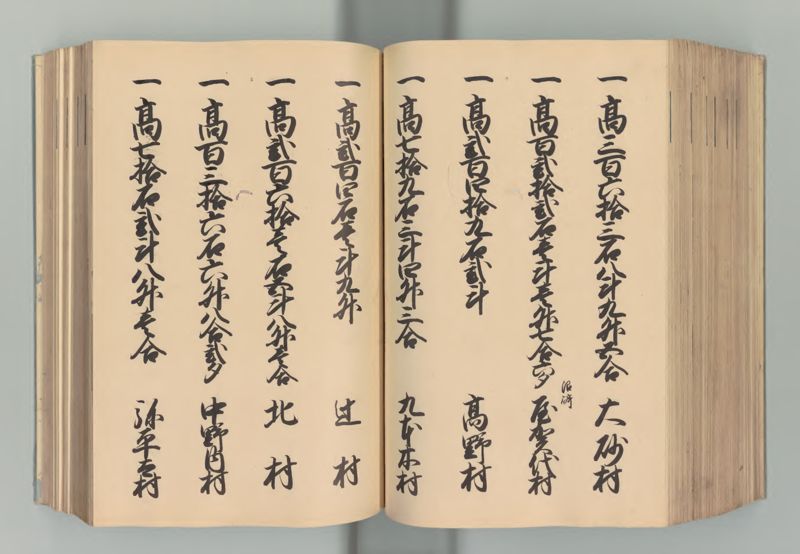 一 高三百六拾三石八斗九升五合 大砂村
一 高百弐拾弐石壱斗壱升七合六夕 屋賀代村
一 高弐百四拾九石弐斗 高野村
一 高七拾九石三斗四升三合 九本木村
一 高弐百四石壱斗九升 辻村
一 高弐百六拾壱石五斗八升壱合 北村
一 高百三拾六石六升八合弐夕 中野内村
一 高七拾石弐斗八升壱合 弥平太村